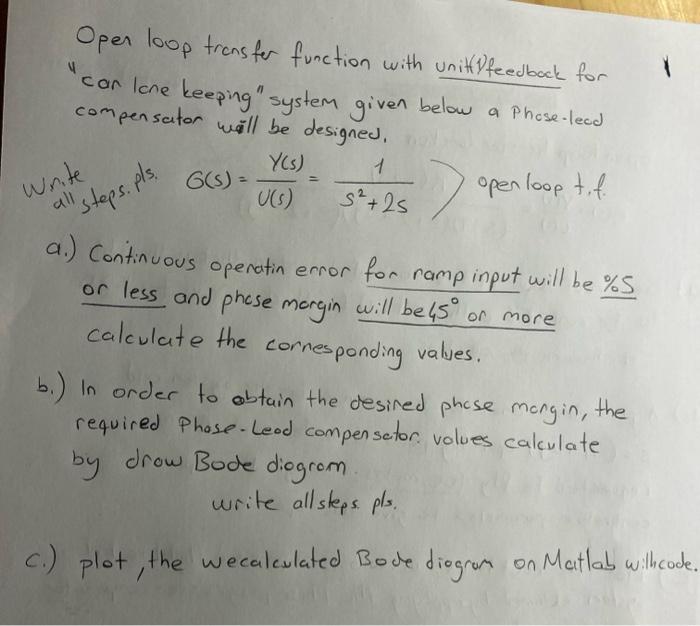 Open loop transfer function with unity feedback for
"car lane keeping" system given below a Phase-lead
compensator will be designed.
Write all steps. pls. G(s) = Y(s)/U(s) = 1/(s² + 2s) ) open loop t.f.
a.) Continuous operatin error for ramp input will be %5
or less and phase margin will be 45° or more
calculate the corresponding values.
b.) In order to obtain the desired phase margin, the
required Phase-Lead compensator. values calculate
by draw Bode diagram.
write all steps. pls.
c.) plot, the wecalculated Bode diagram on Matlab withcode.